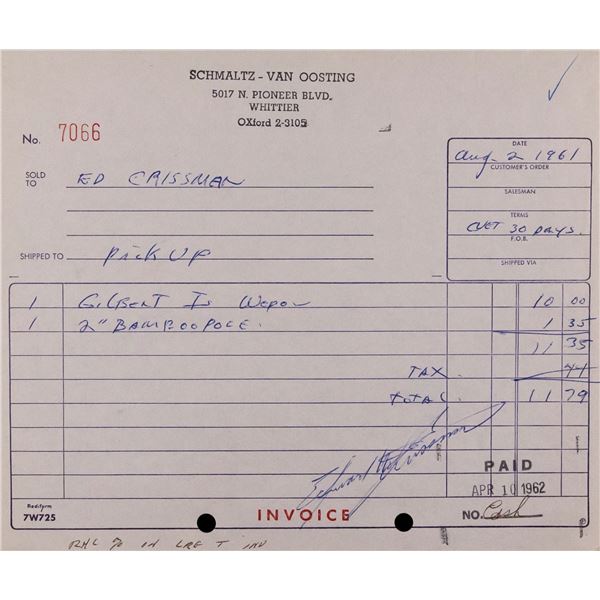 SCHMALTZ - VAN OOSTING
5017 N. PIONEER BLVD.
WHITTIER
OXford 2-3105
No. 7066
DATE
Aug. 2 1961
SOLD TO ED CRISSMAN
CUSTOMER'S ORDER
SALESMAN
TERMS
NET 30 DAYS.
F.O.B.
SHIPPED TO PICK UP
SHIPPED VIA
1 10 00
1 2" BAMBOO POLE. 1 35
11 35
TAX 44
TOTAL 11 79
PAID
APR 10 1962
Rediform
7W725
INVOICE
NO. Cash
IN INV